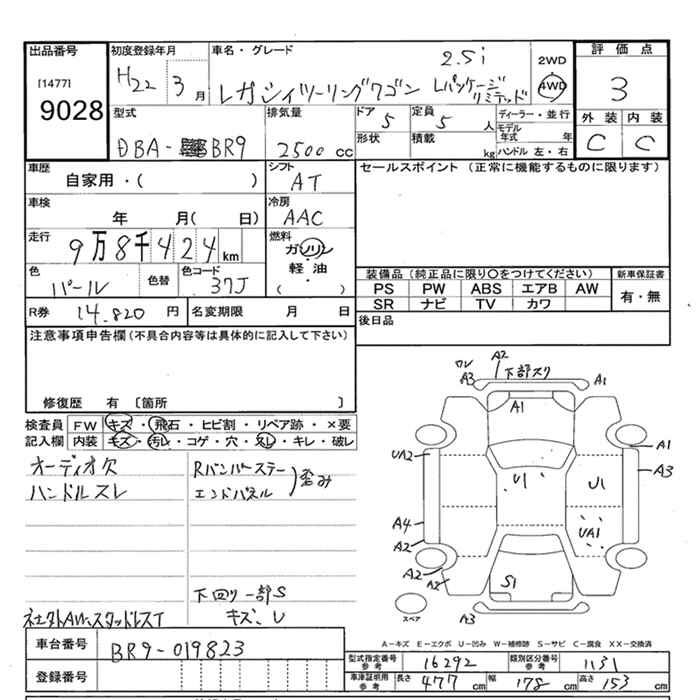 出品番号
[1477]
9028
初度登録年月
H22 3 月
車名・グレード
2.5i
レガシィツーリングワゴン Lパッケージ
リミテッド
2WD
4WD
評価点
3
外装 内装
C C
型式
DBA- BR9
排気量
2500 cc
ドア
5
定員
5 人
ディーラー・並行
形状
積載
kg
モデル年式 年
ハンドル 左・右
車歴
自家用・( )
シフト
AT
セールスポイント (正常に機能するものに限ります)
車検
年 月( 日)
冷房
AAC
走行
9万8千424km
燃料
ガソリン
軽油
( ・ )
色
パール
色替
色コード
37J
装備品(純正品に限り〇をつけてください)
新車保証書
PS PW ABS エアB AW
SR ナビ TV カワ
有・無
R券 14,820 円
名変期限 月 日
後日品
注意事項申告欄(不具合内容等は具体的に記入して下さい)
修復歴 有 〔箇所 〕
検査員
記入欄
FW キズ・飛石・ヒビ割・リペア跡・×要
内装 キズ・汚レ・コゲ・穴・スレ・キレ・破レ
オーディオ欠
ハンドルスレ
Rバンパーステー
エンドパネル
歪み
下回り一部S
キズ、U
社外AW、スタッドレスT
ワレ
A3
A2
下部スリ
A1
A1
UA2
A1
A3
U1
U1
A4
A2
UA1
A2
A2
S1
A3
スペア
A-キズ E-エクボ U-凹み W-補修跡 S-サビ C-腐食 XX-交換済
車台番号
BR9-019823
登録番号
型式指定番号
参考
16292
類別区分番号
参考
1131
車庫証明用
参考
長さ 477 cm
幅 178 cm
高さ 153 cm